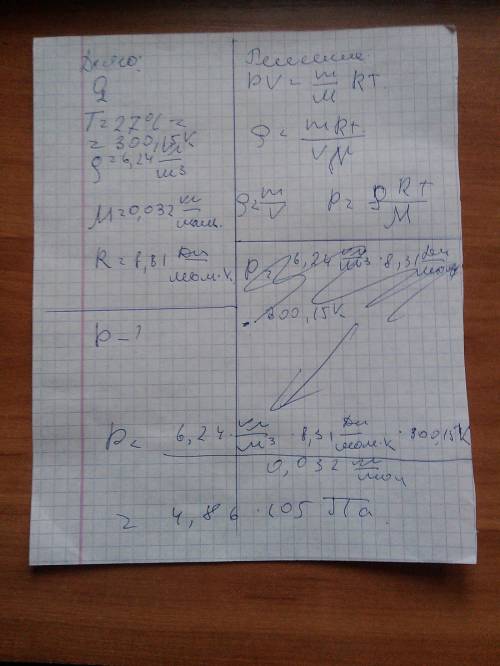 Дано:
Q
T = 27°C =
= 300,15 K
ρ = 6,24 кг/м3
M = 0,032 кг/моль
R = 8,31 Дж/мол·К
p - ?
Решение
PV = m/M RT
P = mRT/VM
ρ = m/V P = ρ RT/M
P = 6,24 кг/м3 · 8,31 Дж/мол
· 300,15 K
P = 6,24 · кг/м3 · 8,31 Дж/мол·К · 300,15 K / 0,032 кг/мол
= 4,86 · 105 Па